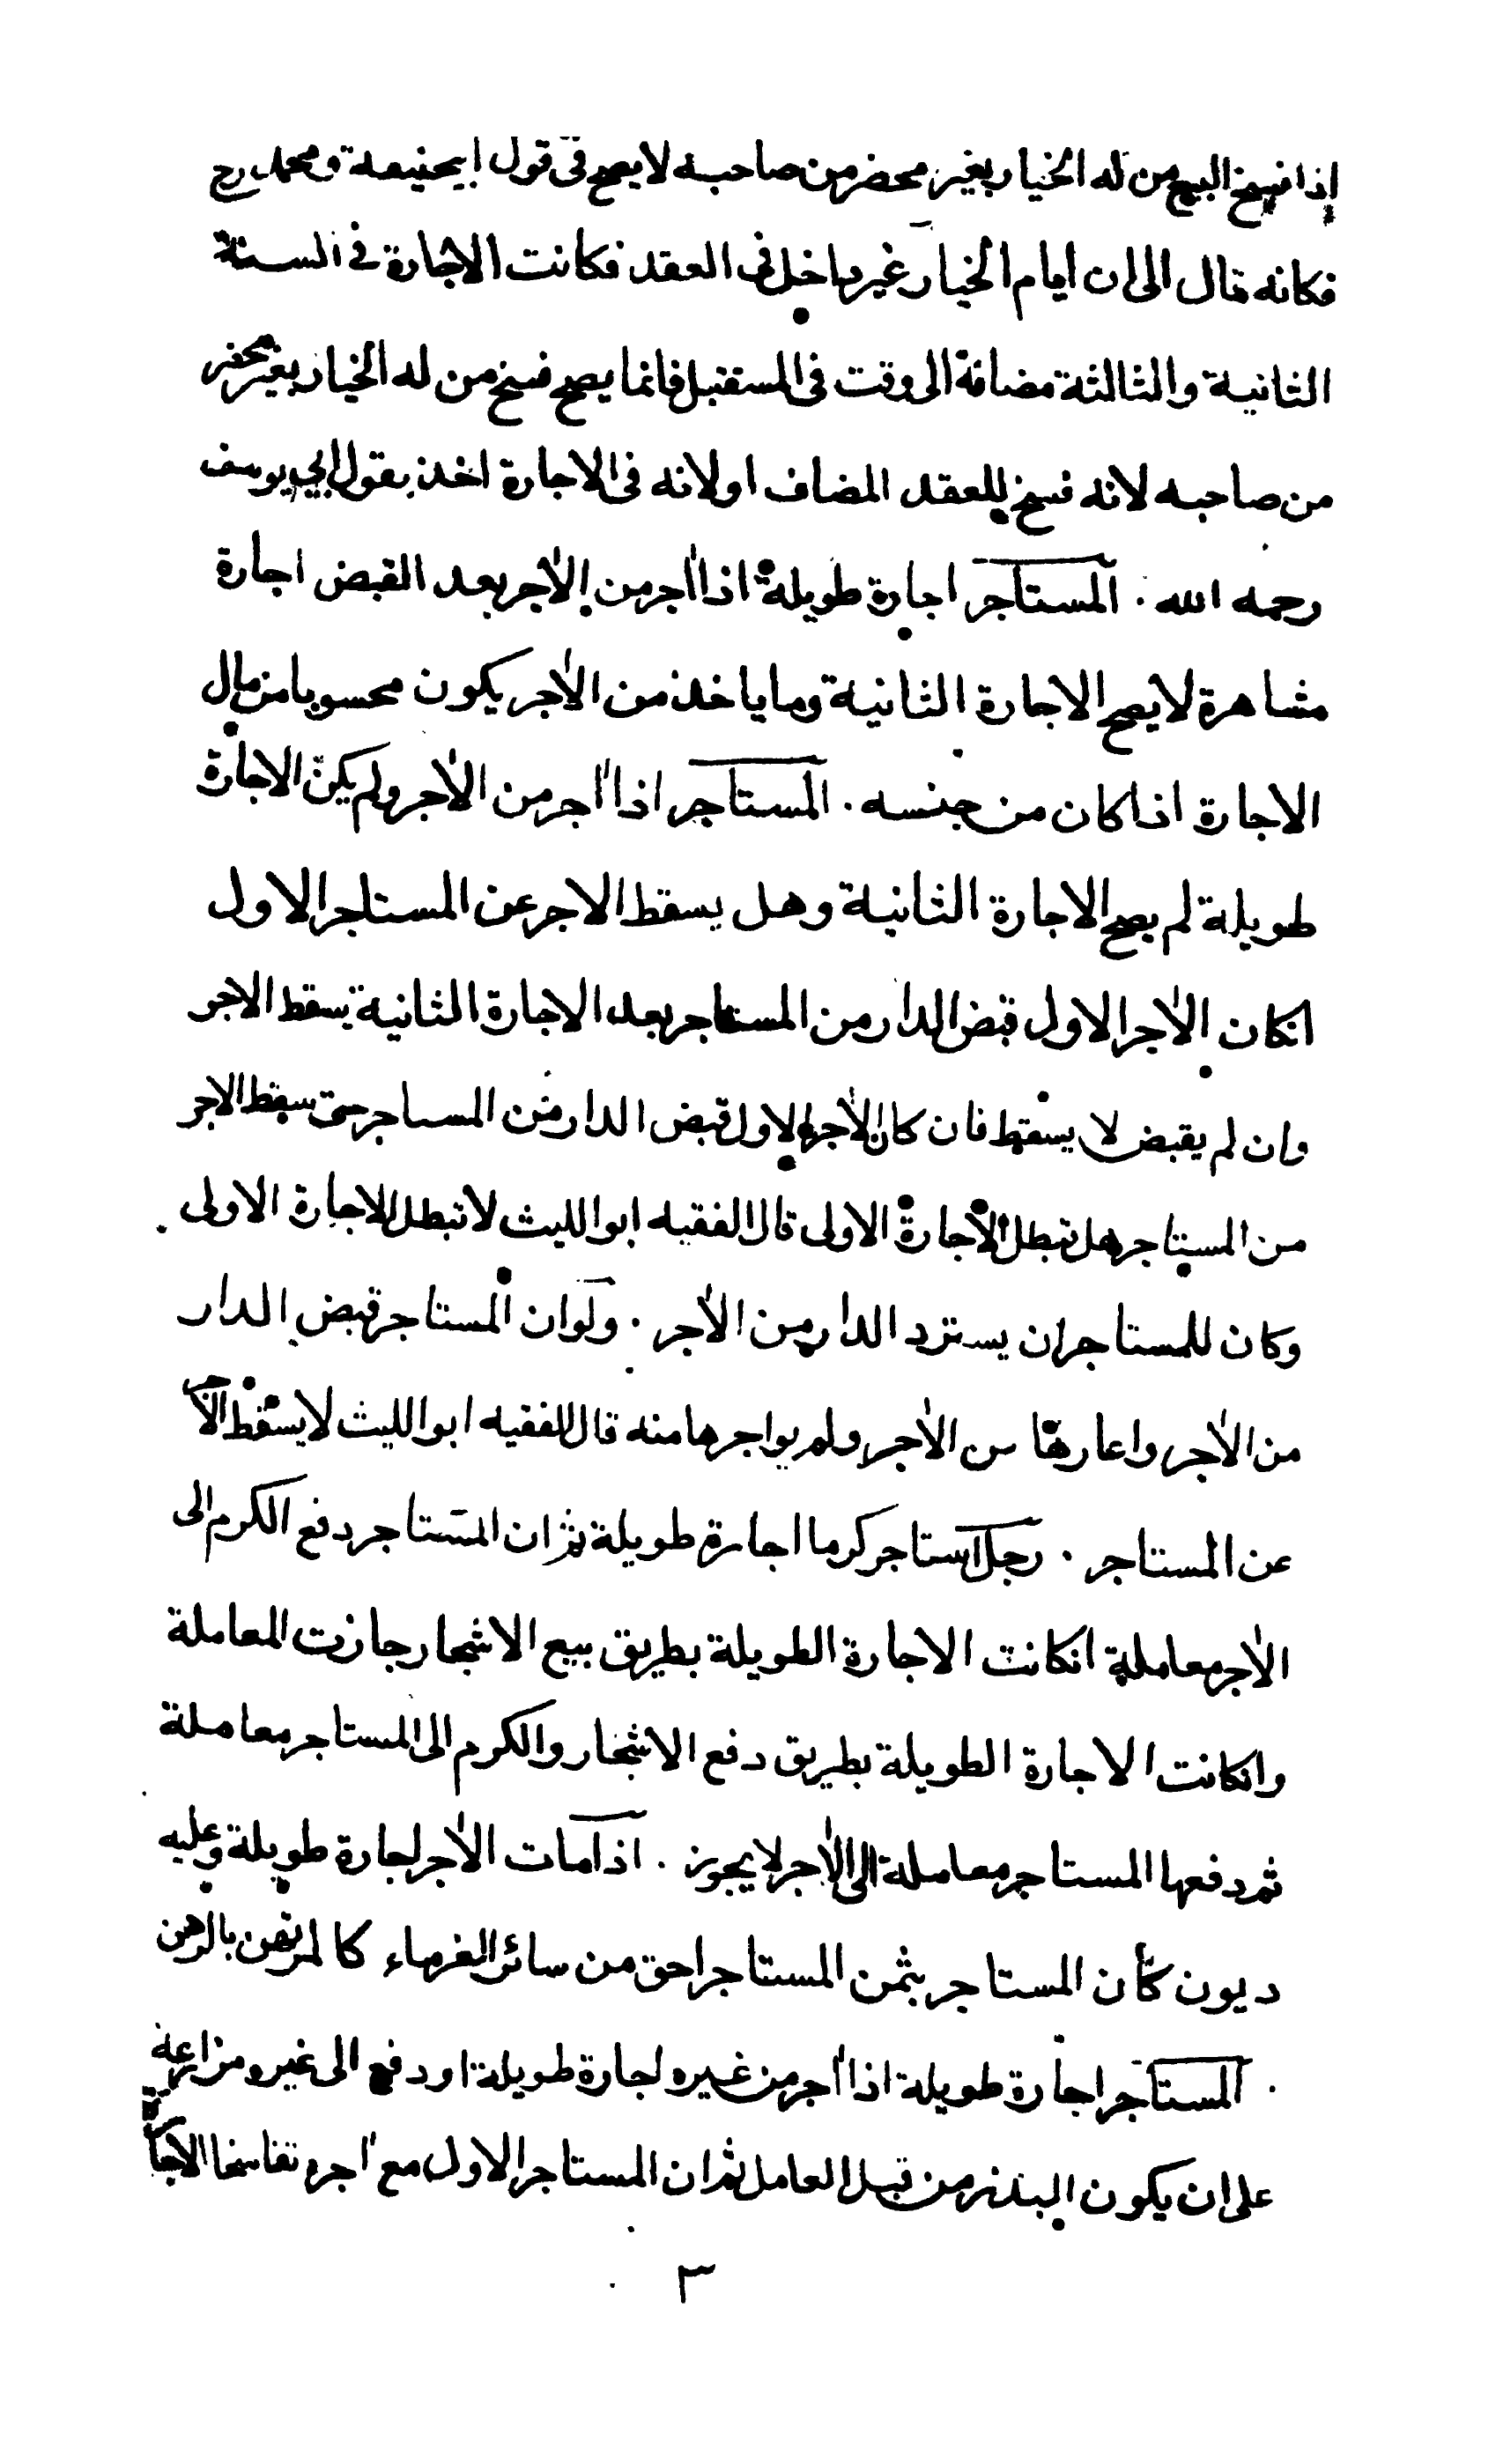 اذا فسخ البيع من له الخيار بغير محضر من صاحبه لا يصح في قول ابيحنيفة ومحمد رح
فكانه قال الى ان ايام الخيار غير داخل في العقد فكانت الاجارة في السنة
الثانية والثالثة مضافة الى وقت في المستقبل فانما يصح فسخ من له الخيار بغير محضر
من صاحبه لانه فسخ للعقد المضاف او لانه في الاجارة اخذ بقول ابي يوسف
رحمه الله . المستاجر اجارة طويلة اذا اٰجر من الاٰجر بعد القبض اجارة
مشاهرة لا يصح الاجارة الثانية وما ياخذ من الاٰجر يكون محسوبا من مال
الاجارة اذا كان من جنسه . المستاجر اذا اٰجر من الاٰجر ولم يكن الاجارة
طويلة لم يصح الاجارة الثانية وهل يسقط الاجر عن المستاجر الاول
انكان الاٰجر الاول قبض الدار من المستاجر بعد الاجارة الثانية يسقط الاجر
وان لم يقبض لا يسقط فان كان الاٰجر الاول قبض الدار من المستاجر حتى سقط الاجر
من المستاجر هل تبطل الاجارة الاولى قال الفقيه ابو الليث لا تبطل الاجارة الاولى .
وكان للمستاجر ان يسترد الدار من الاٰجر . ولو ان المستاجر قبض الدار
من الاٰجر واعارها من الاٰجر ولم يواجرها منه قال الفقيه ابو الليث لا يسقط الاجر
عن المستاجر . رجل استاجر كرما اجارة طويلة ثم ان المستاجر دفع الكرم الى
الاٰجر معاملة انكانت الاجارة الطويلة بطريق بيع الاشجار جازت المعاملة
وانكانت الاجارة الطويلة بطريق دفع الاشجار والكرم الى المستاجر معاملة
ثم دفعها المستاجر معاملة الى الاٰجر لا يجوز . اذا مات الاٰجر اجارة طويلة وعليه
ديون كان المستاجر بثمن المستاجر احق من سائر الغرماء كالمرتهن بالرهن
. المستاجر اجارة طويلة اذا اٰجر من غيره اجارة طويلة او دفع الى غيره مزارعة
على ان يكون البذر من قبل العامل ثم ان المستاجر الاول مع اٰجره تفاسخا الاجارة
٣